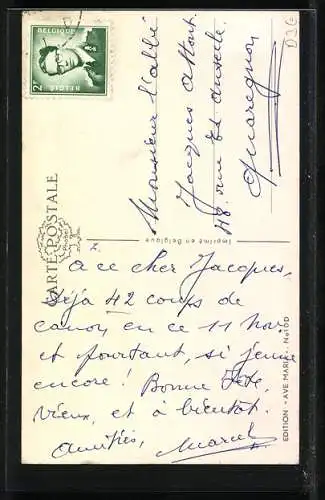 BELGIQUE
2F
BELGIË
CARTE POSTALE
Monsieur l'abbé
Jacques
48, rue
Quaregnon
Imprimé en Belgique
EDITION «AVE MARIA» - No 10D
A ce cher Jacques,
Déjà 42 coups de
canon en ce 11 Nov.
et pourtant, si jeune
encore! Bonne fête,
vieux, et à bientôt.
Amitiés,
Marcel